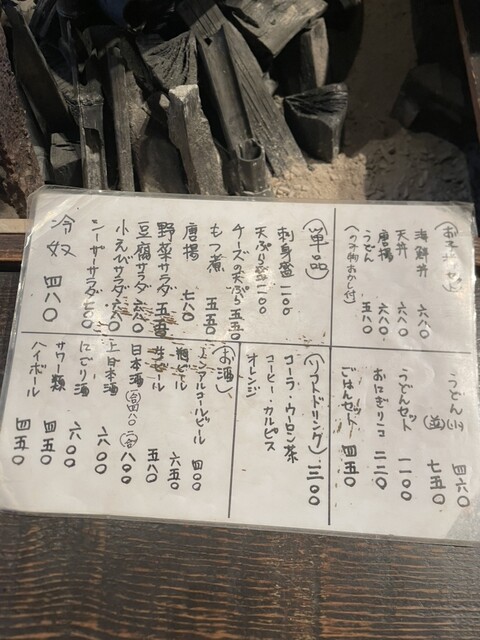 お子様セット
海鮮丼 六八〇
天丼 六八〇
唐揚 六八〇
うどん 五八〇
うどん(小) 四六〇
(並) 七五〇
うどんセット 一一〇〇
おにぎり一コ 二二〇
ごはんセット 四五〇
(単品)
刺身盛 一二〇〇
天ぷら盛 一二〇〇
チーズの天ぷら 五五〇
もつ煮 五五〇
唐揚 七八〇
野菜サラダ 五五〇
豆腐サラダ 六八〇
小えびサラダ 六八〇
シーザーサラダ 七八〇
冷奴 四八〇
(ソフトドリンク) 三〇〇
コーラ・ウーロン茶
コーヒー・カルピス
オレンジ
(お酒)
ノンアルコールビール 四〇〇
瓶ビール 六五〇
生ビール 五八〇
日本酒 八〇〇
上日本酒 六〇〇
にごり酒 六〇〇
サワー類 四五〇
ハイボール 四五〇